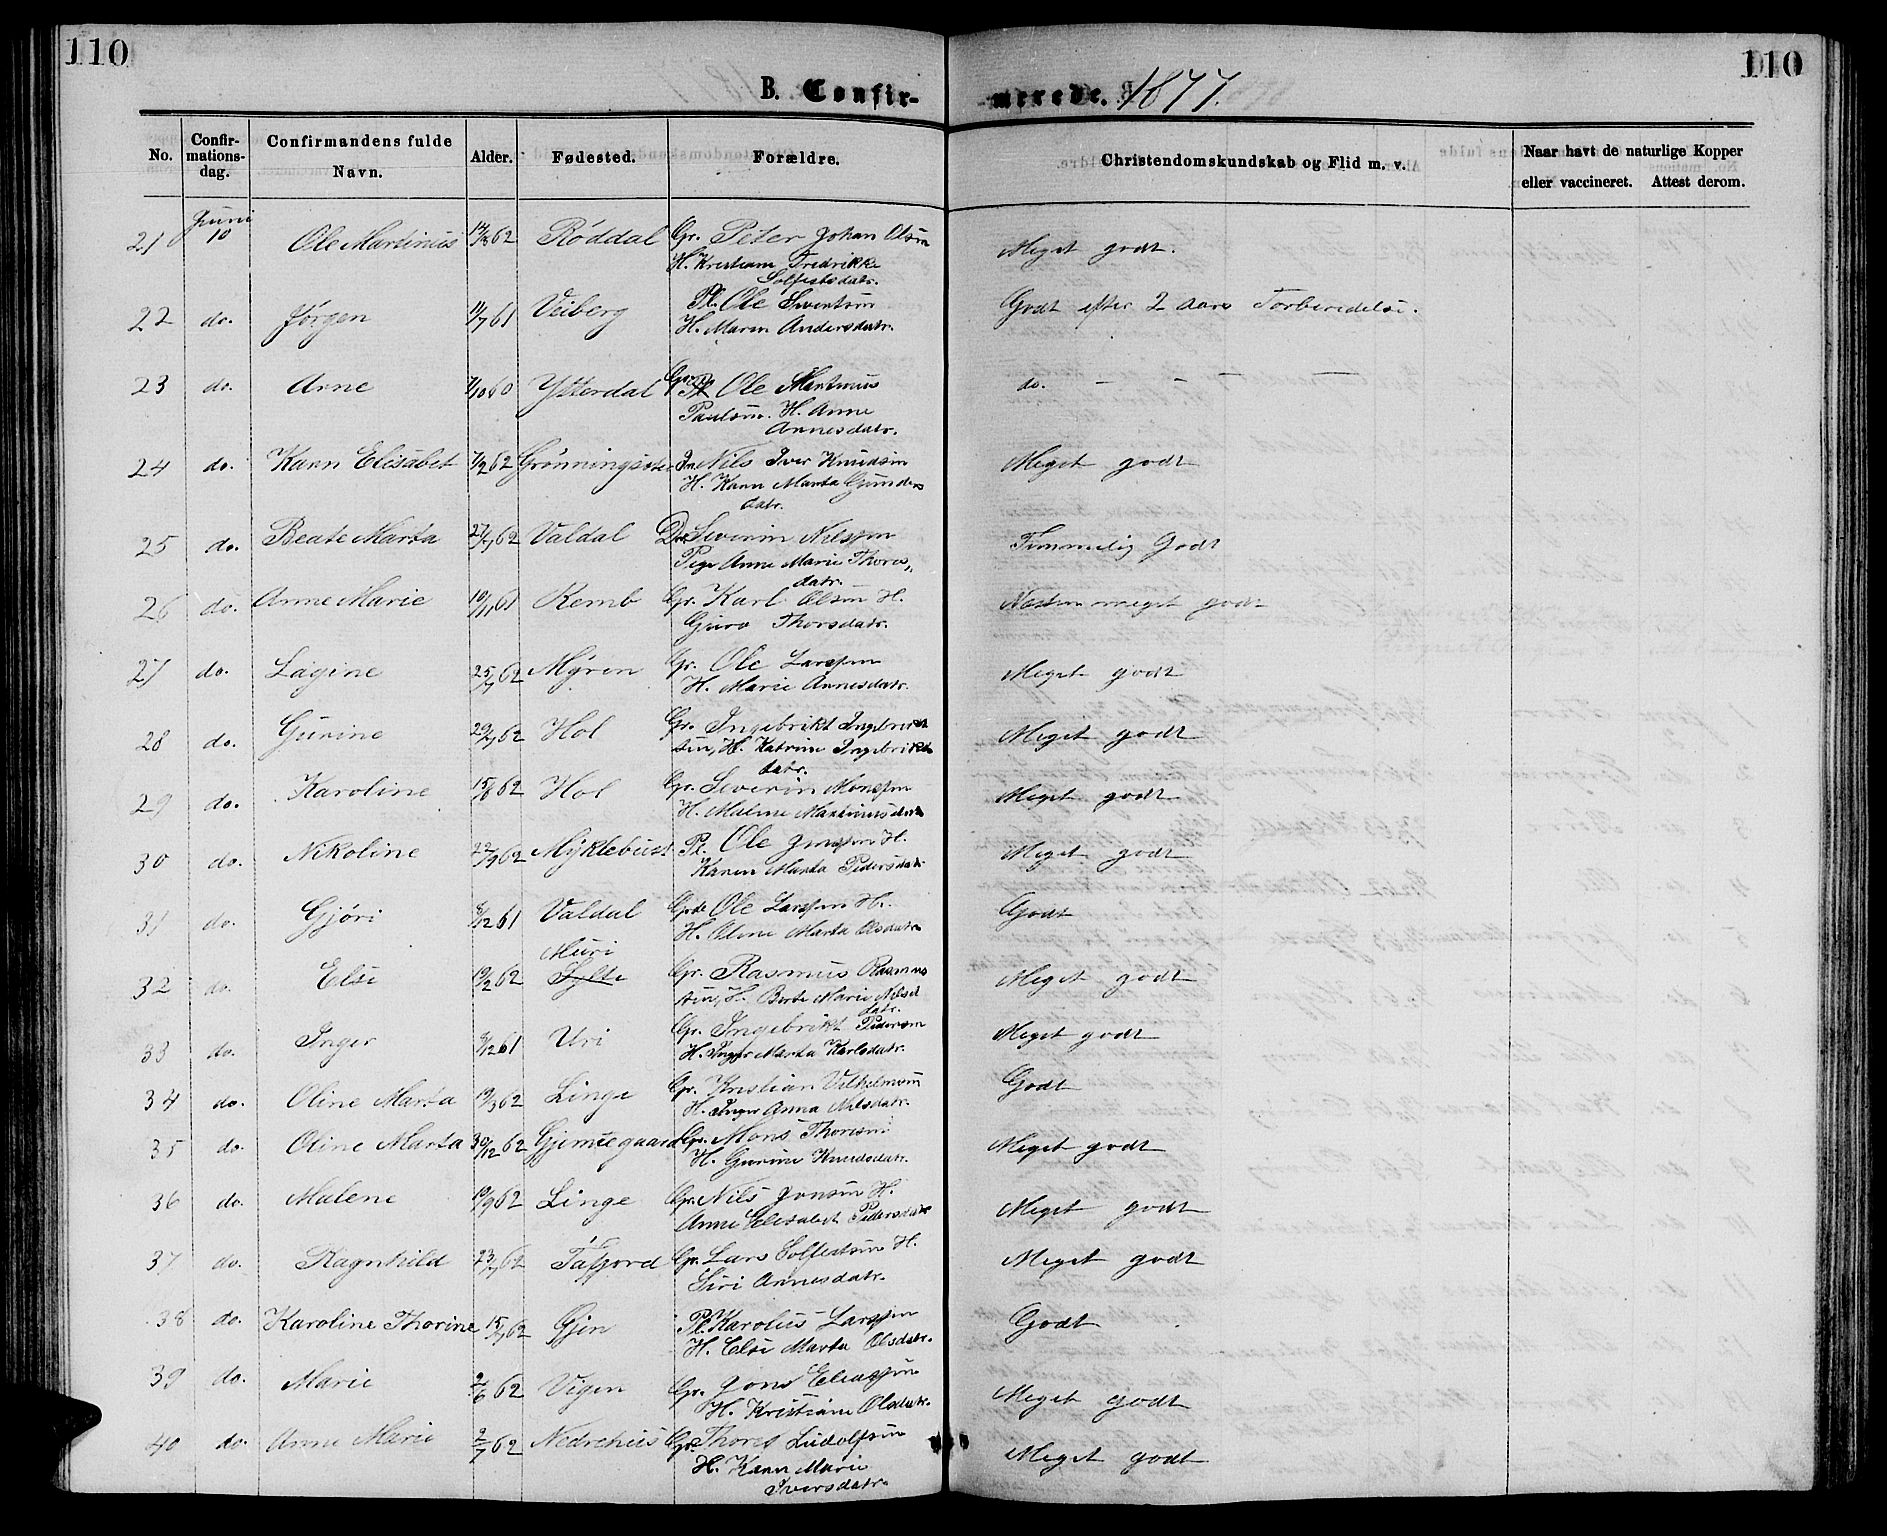 110
110
B. Confir-
merede. 1877.
No.
Confir-
mations-
dag.
Confirmandens fulde
Navn.
Alder.
Fødested.
Forældre.
Christendomskundskab og Flid m. v.
Naar havt de naturlige Kopper
eller vaccineret. Attest derom.
21 Juni 10 Ole Martinus 62 Røddal Gr. Peter Johan Olsen Meget godt.
H. Kristiane Fredrikke
Solfestsdatr.
22 do. Jørgen 11/7 61 Veiberg Pl. Ole Sventsen Godt efter 2 aars Forberedelse.
H. Maren Andersdatr.
23 do. Arne 7/10 60 Ytterdal Gr. Ole Martinus do. - - - -
Paulsen. H. Anne
Arnesdatr.
24 do. Karn Elisabet 7/2 62 Nils Iver Knudsen Meget godt
H. Karn Marta Gunders
datr.
25 do. Beate Marta 62 Valdal Severin Nilssen Temmelig Godt
Pige Anne Marie Thores-
datr.
26 do. Anne Marie 10/11 61 Remb Gr. Karl Olsen H. Næsten meget godt
Guro Thorsdatr.
27 do. Lagine 25/7 62 Myren Gr. Ole Larssen Meget godt
H. Marie Arnesdatr.
28 do. Gurine 62 Hol Gr. Ingebrikt Ingebrikt Meget godt
sen, H. Katrine Ingebrikts
datr.
29 do. Karoline 15/8 62 Hol Gr. Severin Monssen Meget godt
H. Malene Martinusdatr
30 do. Nikoline 22/9 62 Myklebust Pl. Ole Jenssen H. Meget godt
Karen Marta Pedersdatr
31 do. Gjøri 8/12 61 Valdal Ole Larssen H. Godt
H. Oline Marta Olsdatr
Muri
32 do. Else 19/2 62 Sylte Gr. Rasmus Rasmus Meget godt
sen, H. Berte Marie Nils
datr.
33 do. Inger 9/12 61 Uri Gr. Ingebrikt Pedersen Meget godt
H. Inger Marta Karlsdatr.
34 do. Oline Marta 19/3 62 Linge Gr. Kristian Vilhelmsen Godt
H. Inger Anna Nilsdatr.
35 do. Oline Marta 30/12 62 Gr. Mons Thoresen Meget godt
H. Gurine Knudsdatr.
36 do. Malene 19/9 62 Linge Gr. Nils Jonsen H. Meget godt
Anne Elisabet Pedersdatr
37 do. Ragnhild 62 Tafjord Gr. Lars Solfestsen H. Meget godt
Siri Arnesdatr.
38 do. Karoline Thorine 62 Gjen Pl. Karolus Larssen Godt
H. Else Marta Olsdatr.
39 do. Marie 2/6 62 Vigen Gr. Jons Eliassen Meget godt
H. Kristiane Olsdatr.
40 do. Anne Marie 2/7 62 Nedrehus Gr. Thores Ludolfsen Meget godt
H. Karn Marie
Iversdatr.